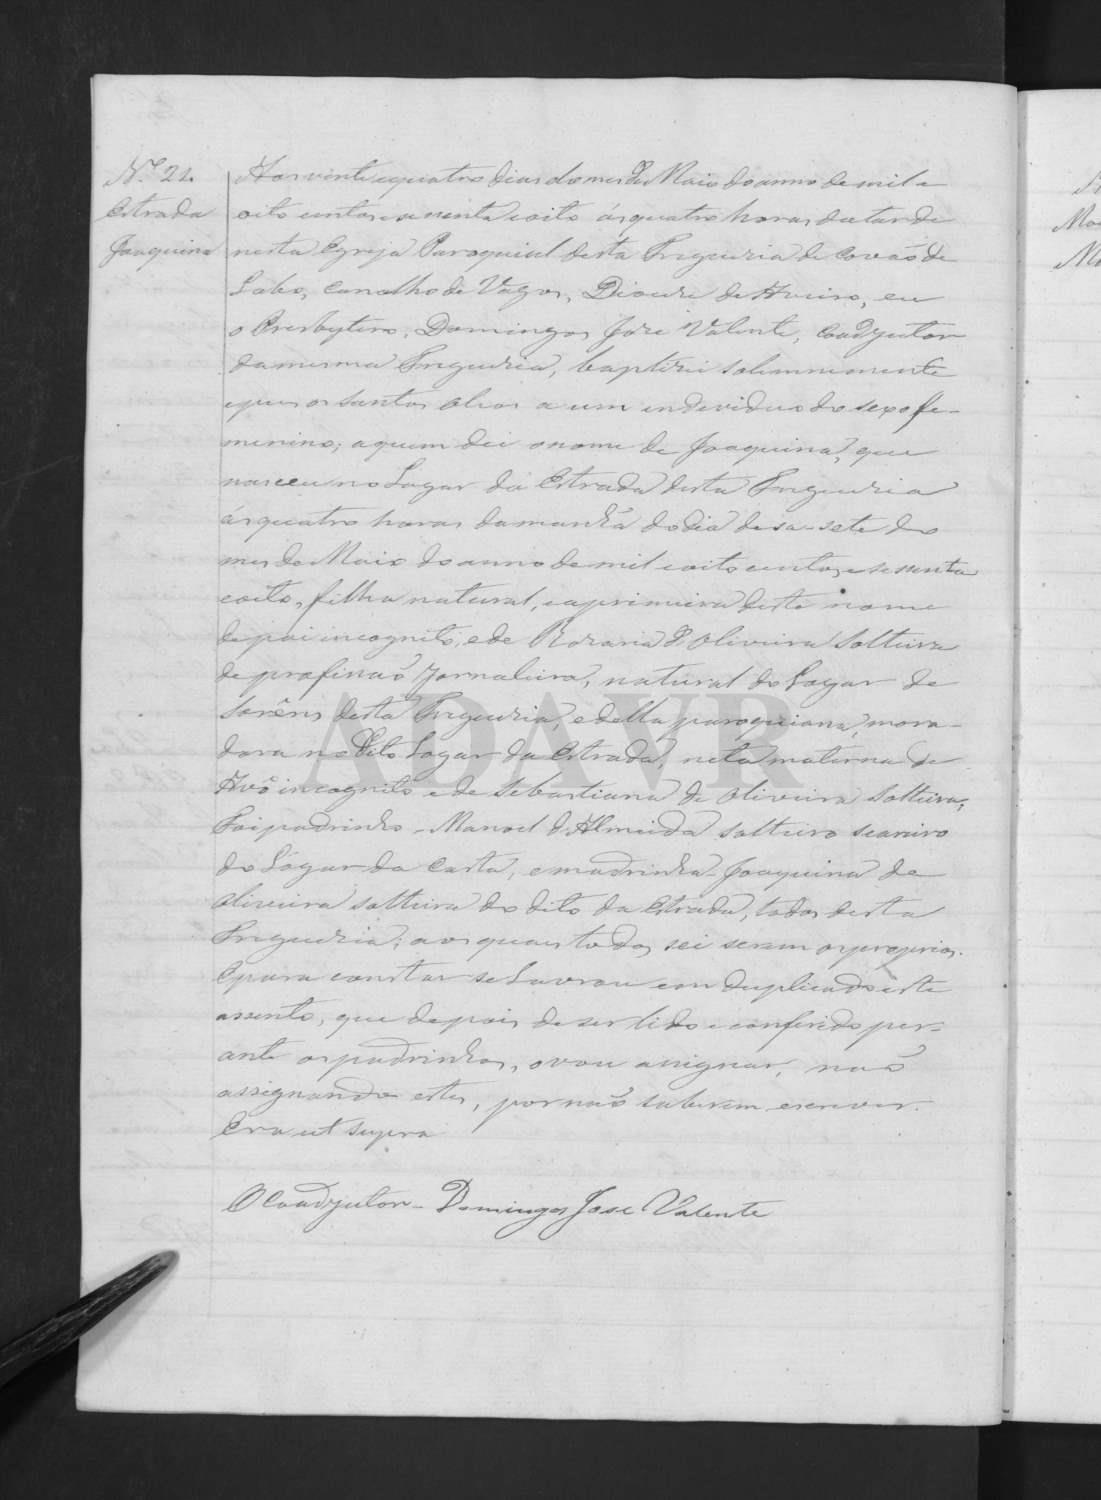 N.º 21.
Estrada
Joaquina
Aos vinte e quatro dias do mes de Maio do anno de mil e
oito centos e sesenta e oito ás quatro horas da tarde
nesta Egreja Paroquial desta Freguezia de Covaõ de
Lobo, Concelho de Vagos, Diocese de Aveiro, eu
o Presbytero, Domingos Jose Valente, Coadjutor
da mesma Freguezia, baptizei solemnemente
e pus os santos oleos a um individuo do sexo fe-
menino; a quem dei o nome de Joaquina, que
nasceu no Lugar da Estrada desta Freguezia
ás quatro horas da manhã do dia desasete do
mes de Maio do anno de mil e oito centos e sessenta
e oito, filha natural, e a primeira deste nome
de pai incognito, e de Rozaria d'Oliveira Solteira
de profissaõ Jornaleira, natural do Lugar de
desta Freguezia, e della paroquiana, mora-
dora no dito Lugar da Estrada, neta materna de
Avô incognito e de Sebastiana de Oliveira Solteira;
Foi padrinho - Manoel d'Almeida solteiro seareiro
do Lugar da e madrinha Joaquina de
Oliveira solteira do dito da Estrada, todos desta
Freguezia; aos quaes todos sei serem os proprios.
E para constar se Lavrou em duplicado este
assento, que depois de ser lido e conferido per-
ante os padrinhos, o vou assignar, naõ
assignando estes, por naõ saberem escrever.
Era ut supra
O Coadjutor - Domingos Jose Valente
ADAVR